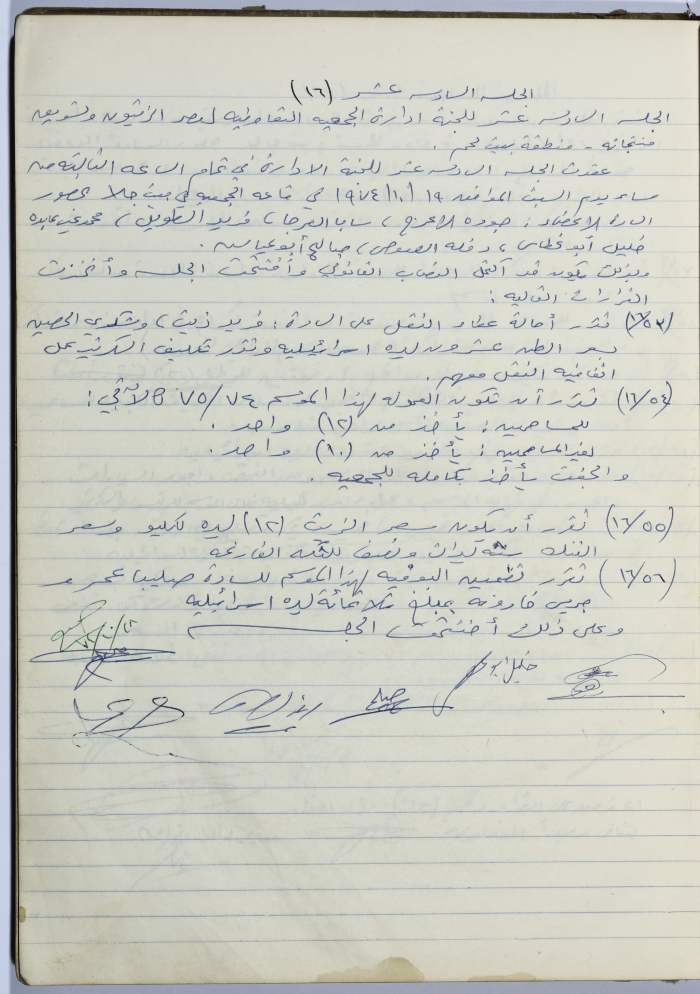 الجلسه السادسه عشر (١٦)
الجلسه السادسه عشر للجنة ادارة الجمعيه التعاونيه لعصر الزيتون وتسويق
منتجاته - منطقة بيت لحم .
عقدت الجلسه السادسه عشر للجنة الادارة في تمام الساعه الثالثه من
مساء يوم السبت الموافق ١٩ /١٠/ ١٩٧٤ في قاعه الجمعيه في بيت جالا بحضور
الساده الاعضاء : جوده الاعرج ، سابا العرجا ، فريد الطويل ،
خليل أبو غطاس ، صالح أبو عياش .
وبذلك يكون قد اكتمل النصاب القانوني وأفتتحت الجلسه وأتخذت
القرارات التاليه :
(١٦/٥٣) تقرر أحالة عطاء النقل على السادة : فريد زيت ، وشكري الحصين
بسعر الطن عشرون ليره اسرائيليه وتقرر تكليف السكرتير عمل
اتفاقيه النقل معهم .
(١٦/٥٤) تقرر أن تكون العموله لهذا الموسم ٧٥/٧٤ كالآتي :
للمساهمين : يأخذ من (١٢) واحد .
لغير المساهمين : يأخذ من (١٠) واحد .
والجفت يأخذ بكامله للجمعيه .
(١٦/٥٥) تقرر أن يكون سعر الزيت (١٢) ليره للكيلو وسعر
التنك سته ليرات ونصف للتنكه الفارغه
(١٦/٥٦) تقرر تضمين البوفيه لهذا الموسم للسادة صليبا عمر و
جريس قاروفه بمبلغ ثلاثمائة ليره اسرائيليه
وعلى ذلك أختتمت الجلسه